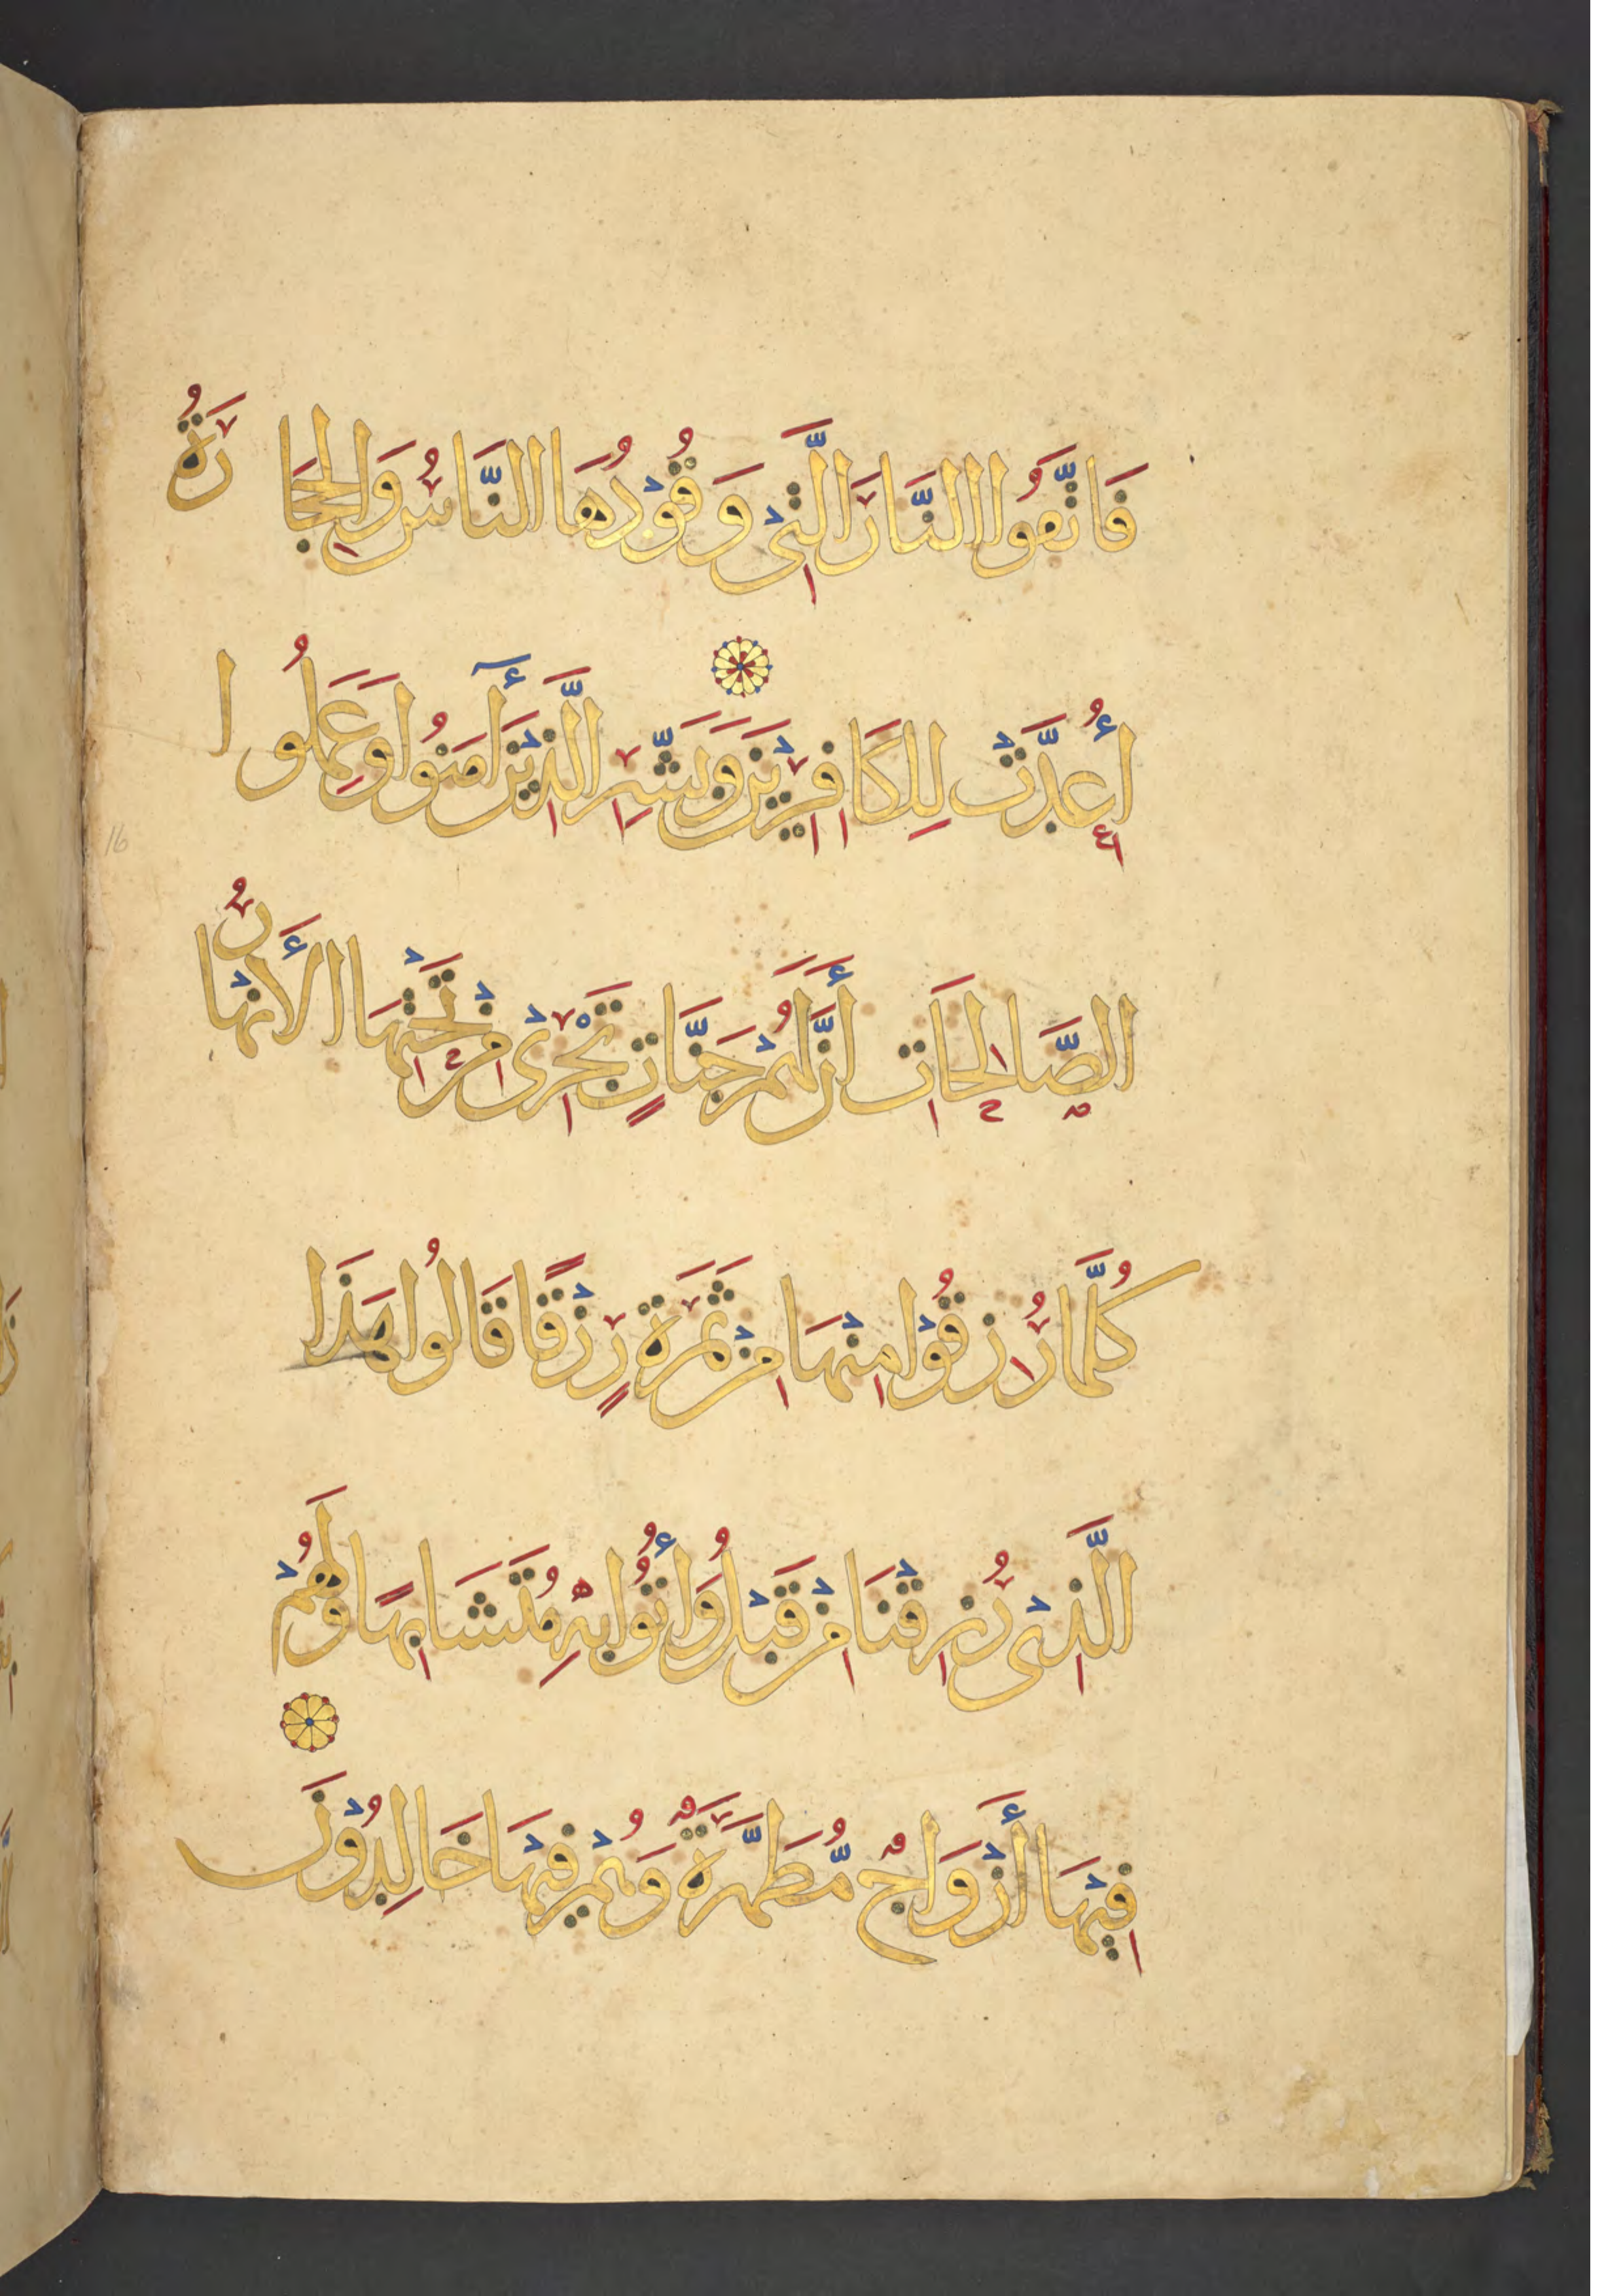 فَاتَّقُوا النَّارَ الَّتِي وَقُودُهَا النَّاسُ وَالْحِجَارَةُ
أُعِدَّتْ لِلْكَافِرِينَ وَبَشِّرِ الَّذِينَ آمَنُوا وَعَمِلُوا
الصَّالِحَاتِ أَنَّ لَهُمْ جَنَّاتٍ تَجْرِي مِنْ تَحْتِهَا الْأَنْهَارُ
كُلَّمَا رُزِقُوا مِنْهَا مِنْ ثَمَرَةٍ رِزْقًا قَالُوا هَذَا
الَّذِي رُزِقْنَا مِنْ قَبْلُ وَأُتُوا بِهِ مُتَشَابِهًا وَلَهُمْ
فِيهَا أَزْوَاجٌ مُّطَهَّرَةٌ وَهُمْ فِيهَا خَالِدُونَ
16